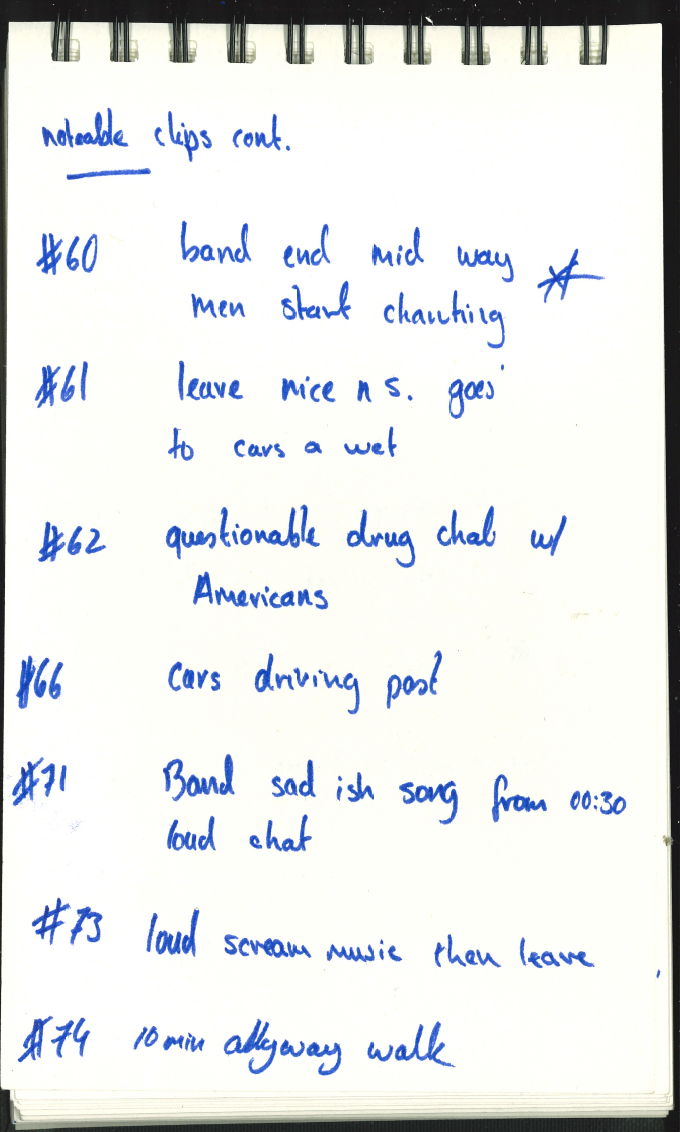 noteable clips cont.
#60 band end mid way
men start chanting
#61 leave nice n s. goes
to cars a wet
#62 questionable drug chat w/
Americans
#66 cars driving past
#71 Band sad ish song from 00:30
loud chat
#73 loud scream music then leave
#74 10 min alleyway walk